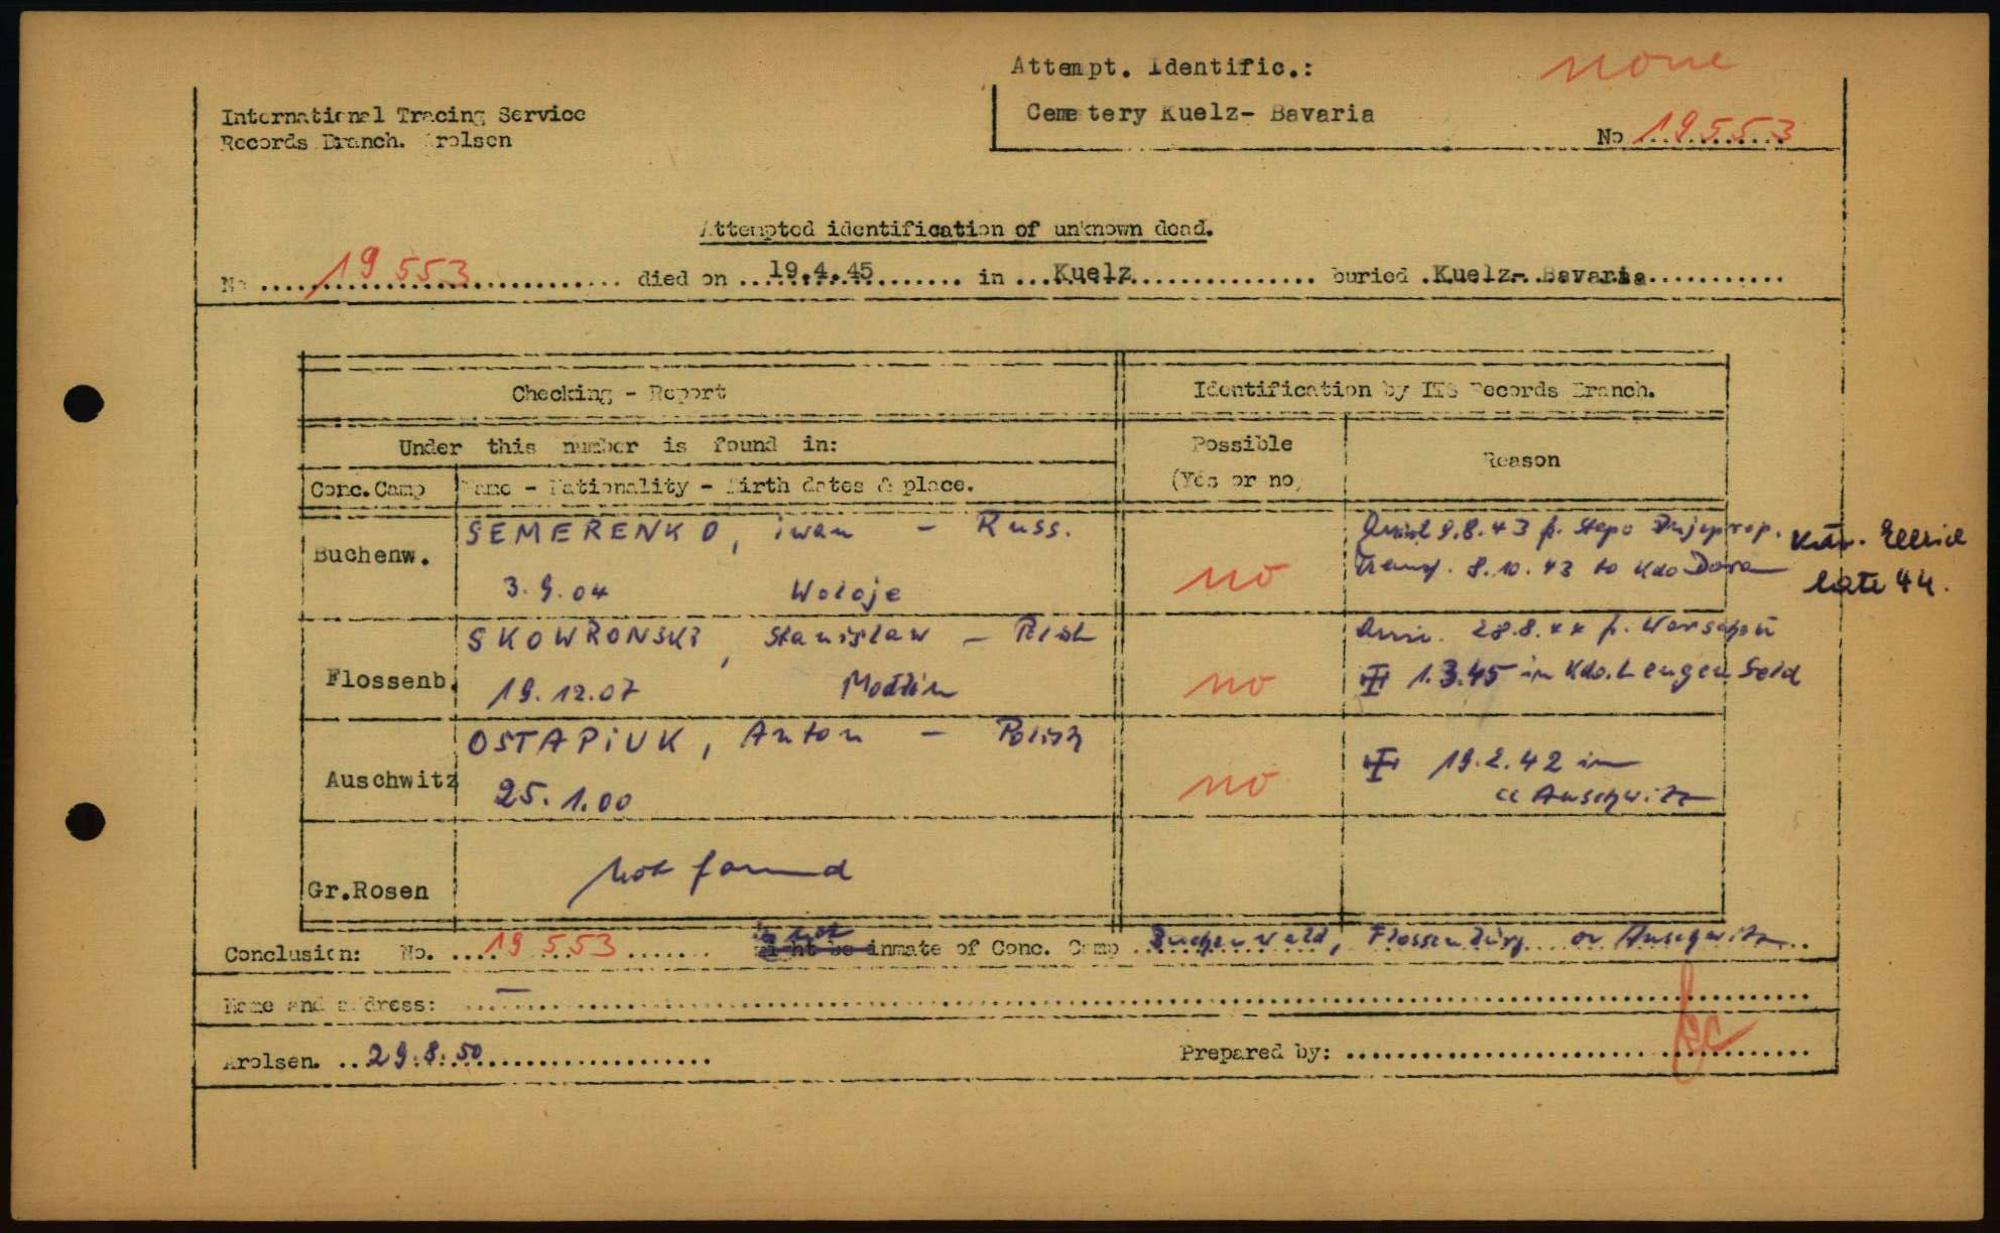 Attempt. Identific.:
none
Cemetery Kuelz- Bavaria
No 19553
International Tracing Service
Records Branch. Arolsen
Attempted identification of unknown dead.
No 19 553 died on 19.4.45 in Kuelz buried Kuelz- Bavaria
Checking - Report
Identification by ITS Records Branch.
Under this number is found in:
Possible
(Yes or no)
Reason
Conc.Camp Name - Nationality - Birth dates & place.
Buchenw.
SEMERENKO, iwan - Russ.
3.9.04 Woloje
no
8.43 f. Stapo Dnjeprop.
Transf. 8.10.43 to Kdo Dora
late 44.
Flossenb.
SKOWRONSKI, Stanislaw - Polish
19.12.07 Modlin
no
28.8.44 f. Warschau
1.3.45 in Kdo. Lengenfeld
Auschwitz
OSTAPIUK, Anton - Polish
25.1.00
no
19.2.42 in
cc Auschwitz
Gr.Rosen
not found
Conclusion: No. 19 553 is not might be inmate of Conc. Camp Buchenwald, Flossenbürg or Auschwitz
Name and address: -
Arolsen. 29.8.50
Prepared by: